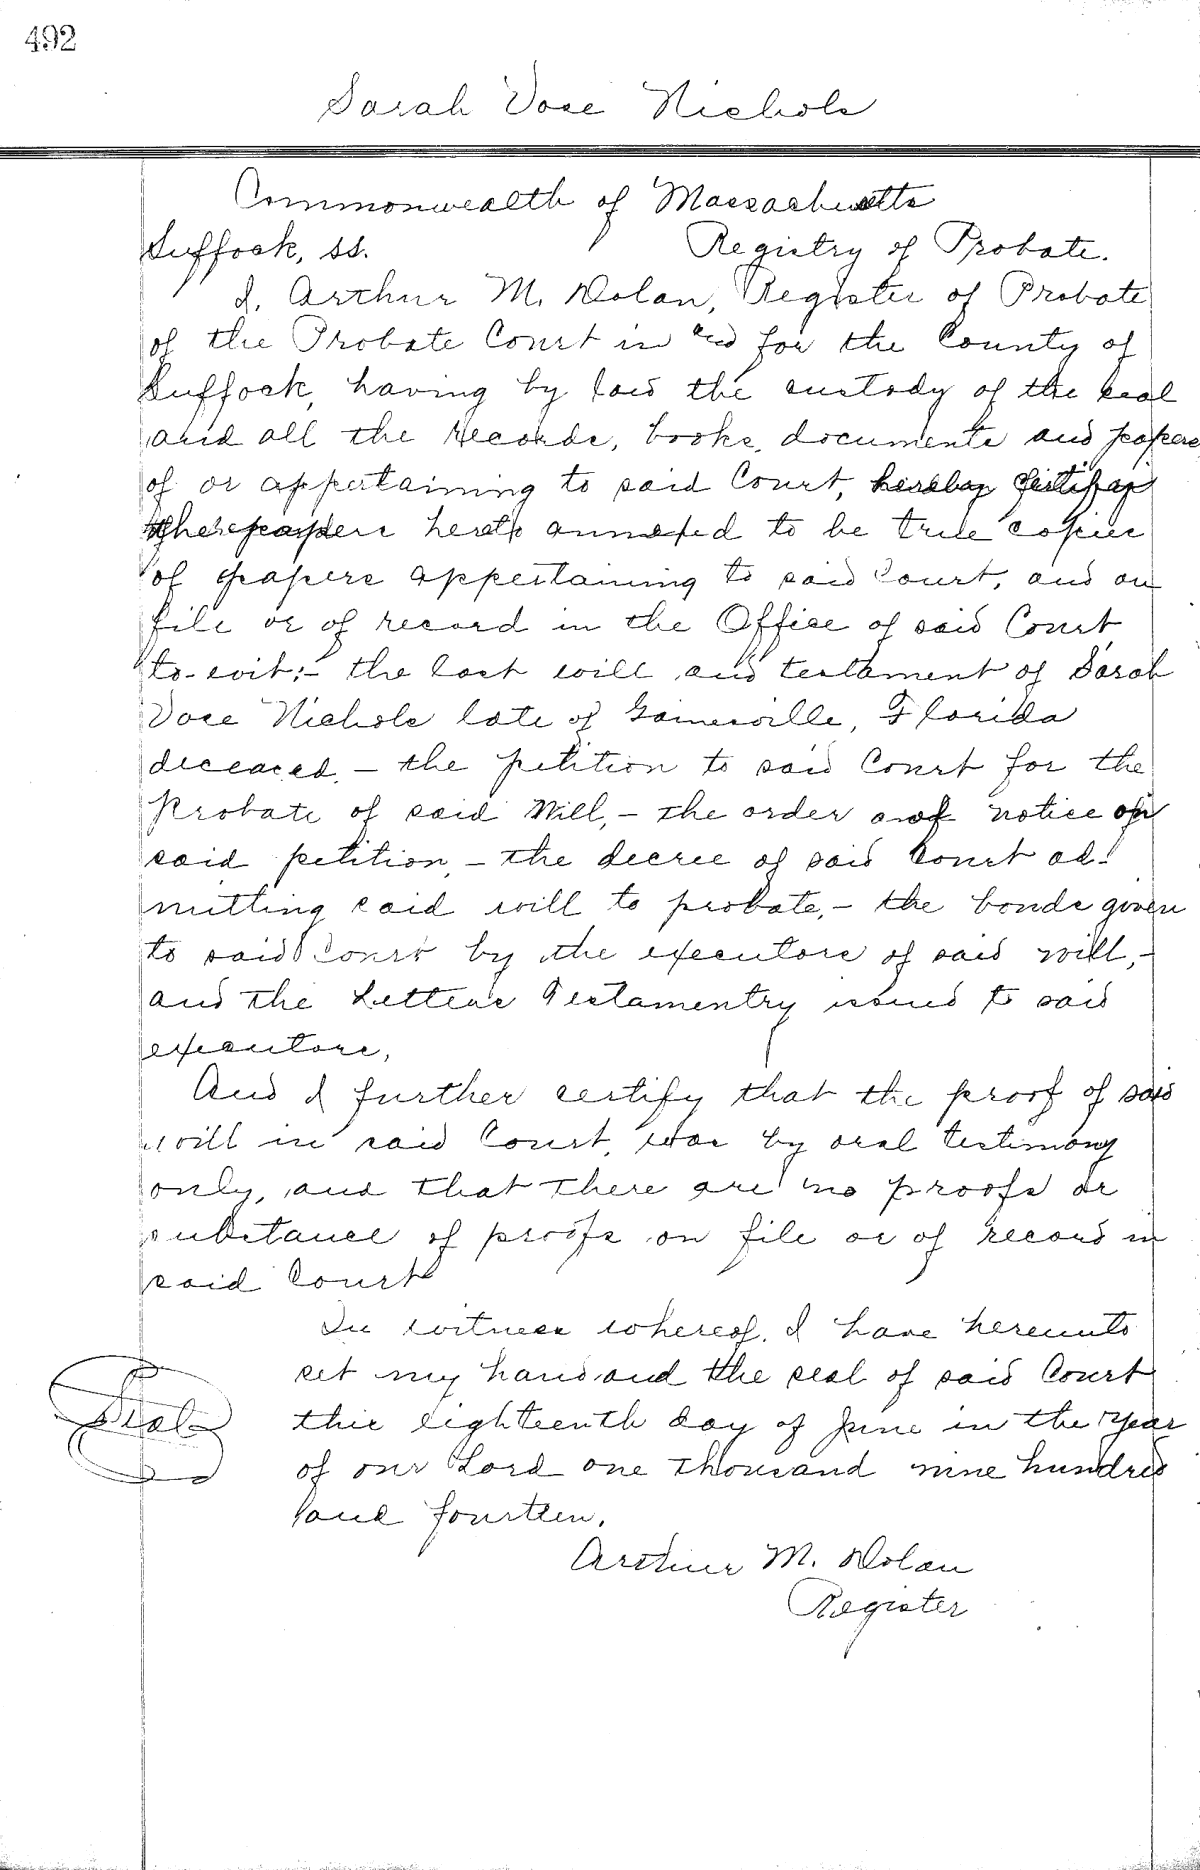 492
Sarah Vose Nichols
Commonwealth of Massachusetts
Suffolk, ss. Registry of Probate.
I, Arthur M. Dolan, Register of Probate
of the Probate Court in and for the County of
Suffolk, having by law the custody of the seal
and all the records, books, documents and papers
of or appertaining to said Court, hereby certify
the papers hereto annexed to be true copies
of papers appertaining to said Court, and on
file or of record in the Office of said Court
to-wit:- the last will and testament of Sarah
Vose Nichols late of Gainesville, Florida
deceased, - the petition to said Court for the
Probate of said Will, - the order of notice on
said petition, - the decree of said Court ad-
mitting said will to probate, - the bonds given
to said Court by the executors of said will, -
and the Letters Testamentry issued to said
executors,
And I further certify that the proof of said
will in said Court, was by oral testimony
only, and that there are no proofs or
substance of proofs on file or of record in
said Court
In witness whereof, I have hereunto
set my hand and the seal of said Court
this eighteenth day of June in the Year
Seal
of our Lord one thousand nine hundred
and fourteen.
Arthur M. Dolan
Register